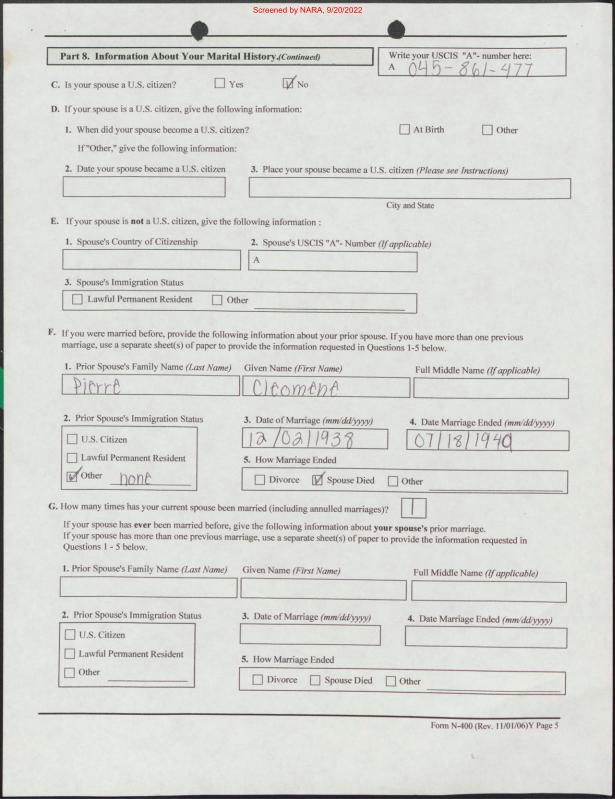 Screened by NARA, 9/20/2022
Part 8. Information About Your Marital History.(Continued)
Write your USCIS "A"- number here:
A 045-861-477
C. Is your spouse a U.S. citizen? Yes No
D. If your spouse is a U.S. citizen, give the following information:
1. When did your spouse become a U.S. citizen? At Birth Other
If "Other," give the following information:
2. Date your spouse became a U.S. citizen 3. Place your spouse became a U.S. citizen (Please see Instructions)
City and State
E. If your spouse is not a U.S. citizen, give the following information :
1. Spouse's Country of Citizenship 2. Spouse's USCIS "A"- Number (If applicable)
A
3. Spouse's Immigration Status
Lawful Permanent Resident Other
F. If you were married before, provide the following information about your prior spouse. If you have more than one previous
marriage, use a separate sheet(s) of paper to provide the information requested in Questions 1-5 below.
1. Prior Spouse's Family Name (Last Name) Given Name (First Name) Full Middle Name (If applicable)
Pierre Cleomene
2. Prior Spouse's Immigration Status 3. Date of Marriage (mm/dd/yyyy) 4. Date Marriage Ended (mm/dd/yyyy)
U.S. Citizen 12/02/1938 07/18/1940
Lawful Permanent Resident 5. How Marriage Ended
Other none Divorce Spouse Died Other
G. How many times has your current spouse been married (including annulled marriages)? 1
If your spouse has ever been married before, give the following information about your spouse's prior marriage.
If your spouse has more than one previous marriage, use a separate sheet(s) of paper to provide the information requested in
Questions 1 - 5 below.
1. Prior Spouse's Family Name (Last Name) Given Name (First Name) Full Middle Name (If applicable)
2. Prior Spouse's Immigration Status 3. Date of Marriage (mm/dd/yyyy) 4. Date Marriage Ended (mm/dd/yyyy)
U.S. Citizen
Lawful Permanent Resident 5. How Marriage Ended
Other Divorce Spouse Died Other
Form N-400 (Rev. 11/01/06)Y Page 5